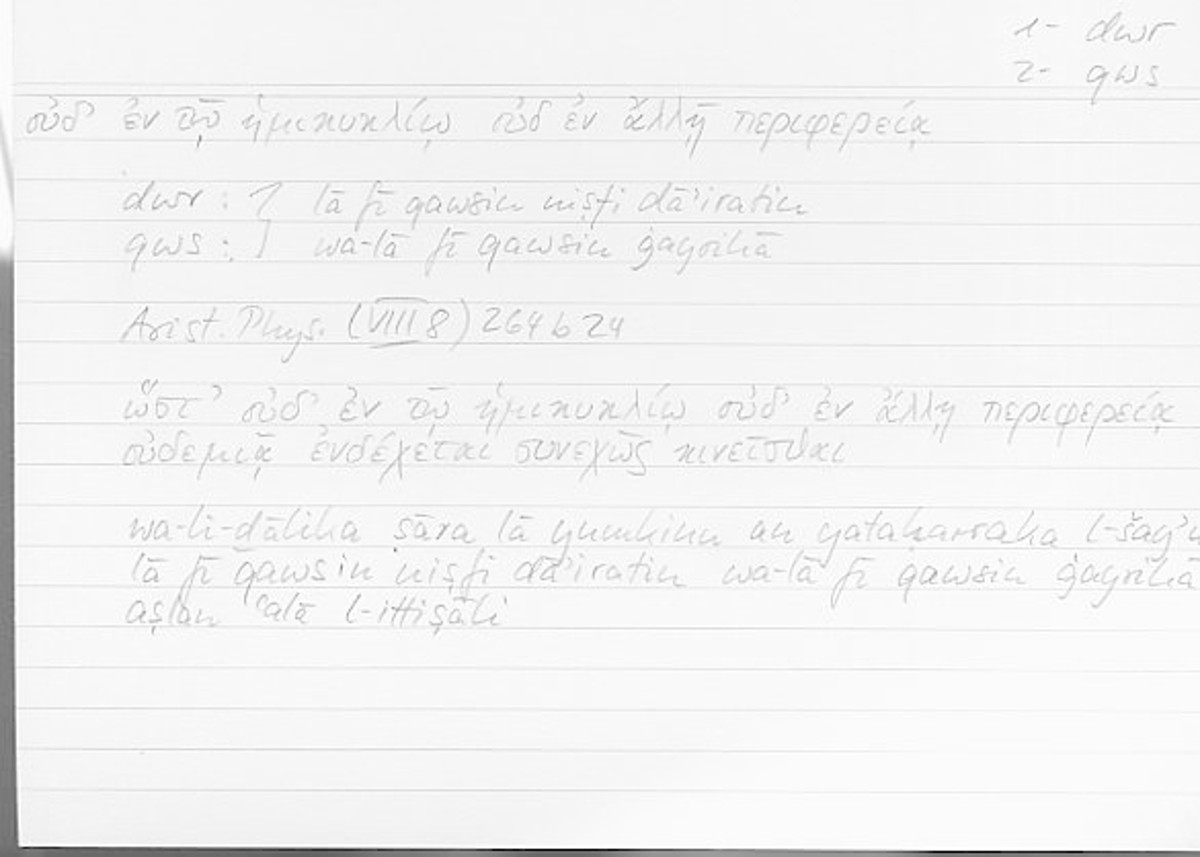 1- dwr
2- qws
οὐδ' ἐν τῷ ἡμικυκλίῳ οὐδ ἐν ἄλλῃ περιφερείᾳ
dwr : } lā fī qawsin niṣfi dā'iratin
qws : } wa-lā fī qawsin ġayrihā
Arist. Phys. (VIII 8) 264 b 24
ὥστ' οὐδ' ἐν τῷ ἡμικυκλίῳ οὐδ' ἐν ἄλλῃ περιφερείᾳ
οὐδεμιᾷ ἐνδέχεται συνεχῶς κινεῖσθαι
wa-li-ḏālika ṣāra lā yumkinu an yataḥarraka l-šay'u
lā fī qawsin niṣfi dā'iratin wa-lā fī qawsin ġayrihā
aṣlan ʿalā l-ittiṣāli